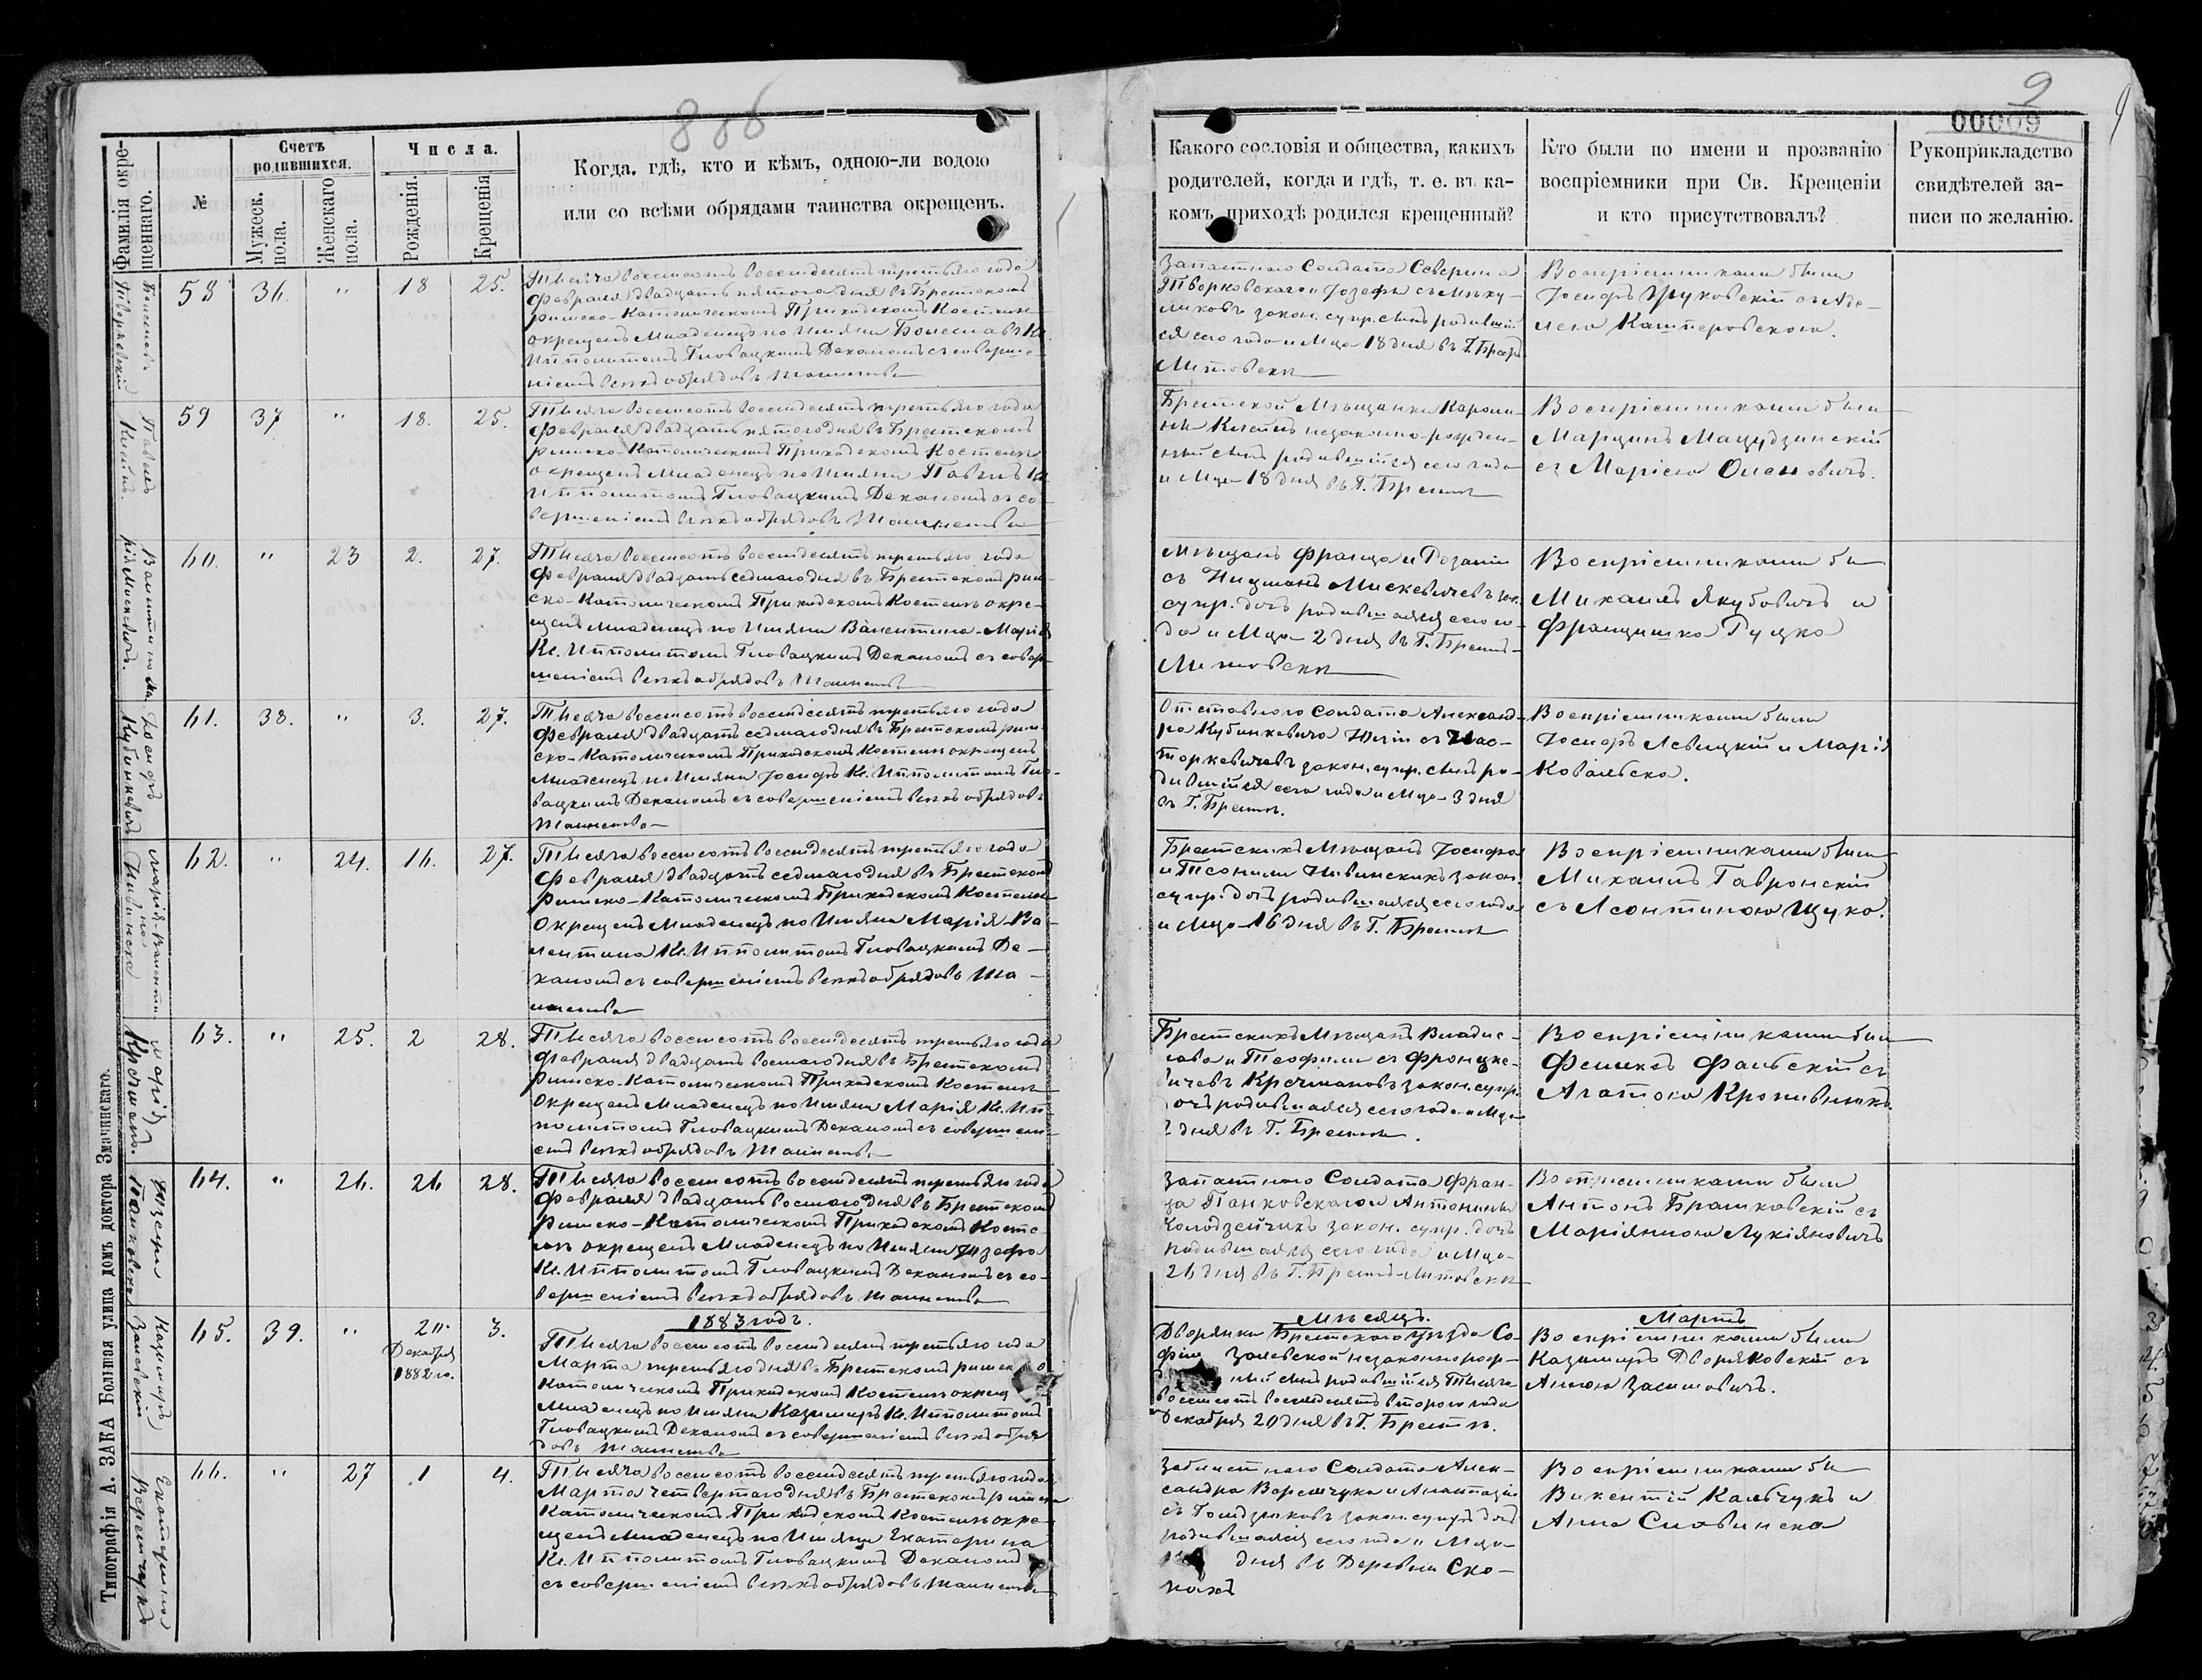 806
9
00009
Фамилія окре-
щеннаго.
№
Счетъ
родившихся.
Мужеск.
пола.
Женскаго
пола.
Числа.
Рожденія.
Крещенія
Когда. гдѣ, кто и кѣмъ, одною-ли водою
или со всѣми обрядами таинства окрещенъ.
Какого сословія и общества, какихъ
родителей, когда и гдѣ, т. е. въ ка-
комъ приходѣ родился крещенный?
Кто были по имени и прозванію
воспріемники при Св. Крещеніи
и кто присутствовалъ?
Рукоприкладство
свидѣтелей за-
писи по желанію.
Болеславъ
Творковскій
58 36. " 18 25.
Тысяча восемсотъ восемдесятъ третьяго года
Февраля двадцать пятого дня въ Брестскомъ
римско-Католическомъ Приходскомъ Костелѣ
окрещенъ Младенецъ по Имяни Болеславъ Кс.
Ипполитомъ Гловацкимъ Деканомъ съ соверше-
ніемъ всѣхъ обрядовъ таинства
Запаснаго Солдата Северина
Творковскаго и Іозефы съ
закон. супр. сынъ родившій
ся сего года и Мца 18 дня въ Г. Брестъ
Литовскѣ
Воспріемниками были
Іосифъ Жуковскій съ
Каштеровскою.
Павелъ
Клаинъ.
59 37 " 18. 25.
Тысяча восемсотъ восемдесятъ третьяго года
Февраля двадцать пятого дня въ Брестскомъ
римско-Католическомъ Приходскомъ Костелѣ
окрещенъ Младенецъ по Имяни Павелъ Кс.
Ипполитомъ Гловацкимъ Деканомъ съ со-
вершеніемъ всѣхъ обрядовъ Таинства
Брестской Мѣщанки Кароли-
ны незаконно-рожден-
ный сынъ родившійся сего года
и Мца 18 дня въ Г. Брестѣ
Воспріемниками были
Марцинъ Мацудзинскій
съ Маріею
Валентина Ма-
рія Мискевичъ.
60. " 23 2. 27.
Тысяча восемсотъ восемдесятъ третьяго года
Февраля двадцать седмаго дня въ Брестскомъ рим-
ско-Католическомъ Приходскомъ Костелѣ окре-
щенъ Младенецъ по Имяни Валентина-Марія
Кс. Ипполитомъ Гловацкимъ Деканомъ съ совер-
шеніемъ всѣхъ обрядовъ Таинства
Мѣщанъ Франца и Розаліи
съ Мискевичевъ зак.
супр. дочь родившаяся сего го-
да и Мца 2 дня въ Г. Брестъ-
Литовскѣ
Воспріемниками бы
Михаилъ Якубовичъ и
Францишка Руцка
Іосифъ
Кубинкевичъ
61. 38. " 3. 27.
Тысяча восемсотъ восемдесятъ третьяго года
Февраля двадцать седмаго дня въ Брестскомъ рим-
ско-Католическомъ Приходскомъ Костелѣ окрещенъ
Младенецъ по Имяни Іосифъ Кс. Ипполитомъ Гло-
вацкимъ Деканомъ съ совершеніемъ всѣхъ обрядовъ
Таинства
Отставного Солдата Александ-
ра Кубинкевича Юліи съ
закон. супр. сынъ ро-
дившійся сего года и Мца 3 дня
въ Г. Брестѣ.
Воспріемниками были
Іосифъ Левицкій и Марія
Ковальска.
Марія-Валенти
на
Нивинска
62. " 24. 16. 27.
Тысяча восемсотъ восемдесятъ третьяго года
Февраля двадцать седмаго дня въ Брестскомъ
Римско-Католическомъ Приходскомъ Костелѣ
окрещенъ Младенецъ по Имяни Марія-Ва-
лентина Кс. Ипполитомъ Гловацкимъ Де-
каномъ съ совершеніемъ всѣхъ обрядовъ Таи-
нства
Брестскихъ Мѣщанъ Іосифа
и Нивинскихъ закон.
супр. дочь родившаяся сего года
и Мца 16 дня въ Г. Брестѣ
Воспріемниками были
Михаилъ Гавронскій
съ Леонтиною Щука.
Марія
Кречманъ.
63. " 25. 2 28.
Тысяча восемсотъ восемдесятъ третьяго года
Февраля двадцать восмаго дня въ Брестскомъ
Римско-Католическомъ Приходскомъ Костелѣ
окрещенъ Младенецъ по Имяни Марія Кс. Ип-
политомъ Гловацкимъ Деканомъ съ совершені-
емъ всѣхъ обрядовъ Таинства
Брестскихъ Мѣщанъ Владис-
лава и Теофили съ Францке-
вичевъ Кречмановъ закон. супр.
дочь родившаяся сего года и Мца
2 дня въ Г. Брестѣ.
Воспріемниками были
Феликсъ Фальскій съ
Агатою
Юзефа
Панковска
64. " 26. 26 28.
Тысяча восемсотъ восемдесятъ третьяго года
Февраля двадцать восмаго дня въ Брестскомъ
Римско-Католическомъ Приходскомъ Косте-
лѣ окрещенъ Младенецъ по Имяни Юзефа
Кс. Ипполитомъ Гловацкимъ Деканомъ съ со-
вершеніемъ всѣхъ обрядовъ таинства
Запаснаго Солдата Фран-
ца Панковскаго и Антонины
закон. супр. дочь
родившаяся сего года и Мца
26 дня въ Г. Брестъ-Литовскѣ
Воспріемниками были
Антонъ Брашковскій съ
Маріянною Лукіяновичъ
1883 годъ. Мѣсяцъ. Мартъ
Казимиръ
Залевскій
65. 39. " 20. 3.
Декабря
1882 го.
Тысяча восемсотъ восемдесятъ третьяго года
Марта третьяго дня въ Брестскомъ римско
Католическомъ Приходскомъ Костелѣ окрещ
Младенецъ по Имяни Казимиръ Кс. Ипполитомъ
Гловацкимъ Деканомъ съ совершеніемъ всѣхъ обря
довъ Таинства
Дворянки Брестскаго уѣзда Со-
фіи Залевской незаконнорож-
ный сынъ родившійся Тысяча
восемсотъ восемдесятъ второго года
Декабря 20 дня въ Г. Брестѣ.
Воспріемниками были
Казимиръ Дворяковскій съ
Анною
Екатерина
Веремчукъ
66. " 27 1 4.
Тысяча восемсотъ восемдесятъ третьяго года
Марта четвертаго дня въ Брестскомъ римско
Католическомъ Приходскомъ Костелѣ окре-
щенъ Младенецъ по Имяни Екатерина
Кс. Ипполитомъ Гловацкимъ Деканомъ
съ совершеніемъ всѣхъ обрядовъ таинства
Солдата Алек-
сандра Веремчука и Анастазіи
съ закон. супр. дочь
родившаяся сего года и Мца
дня въ Деревни Ско-
Воспріемниками бы
Викентій Кальчукъ и
Анна Славинска
Типографія А. ЗАКА Большая улица домъ доктора Змачинскаго.